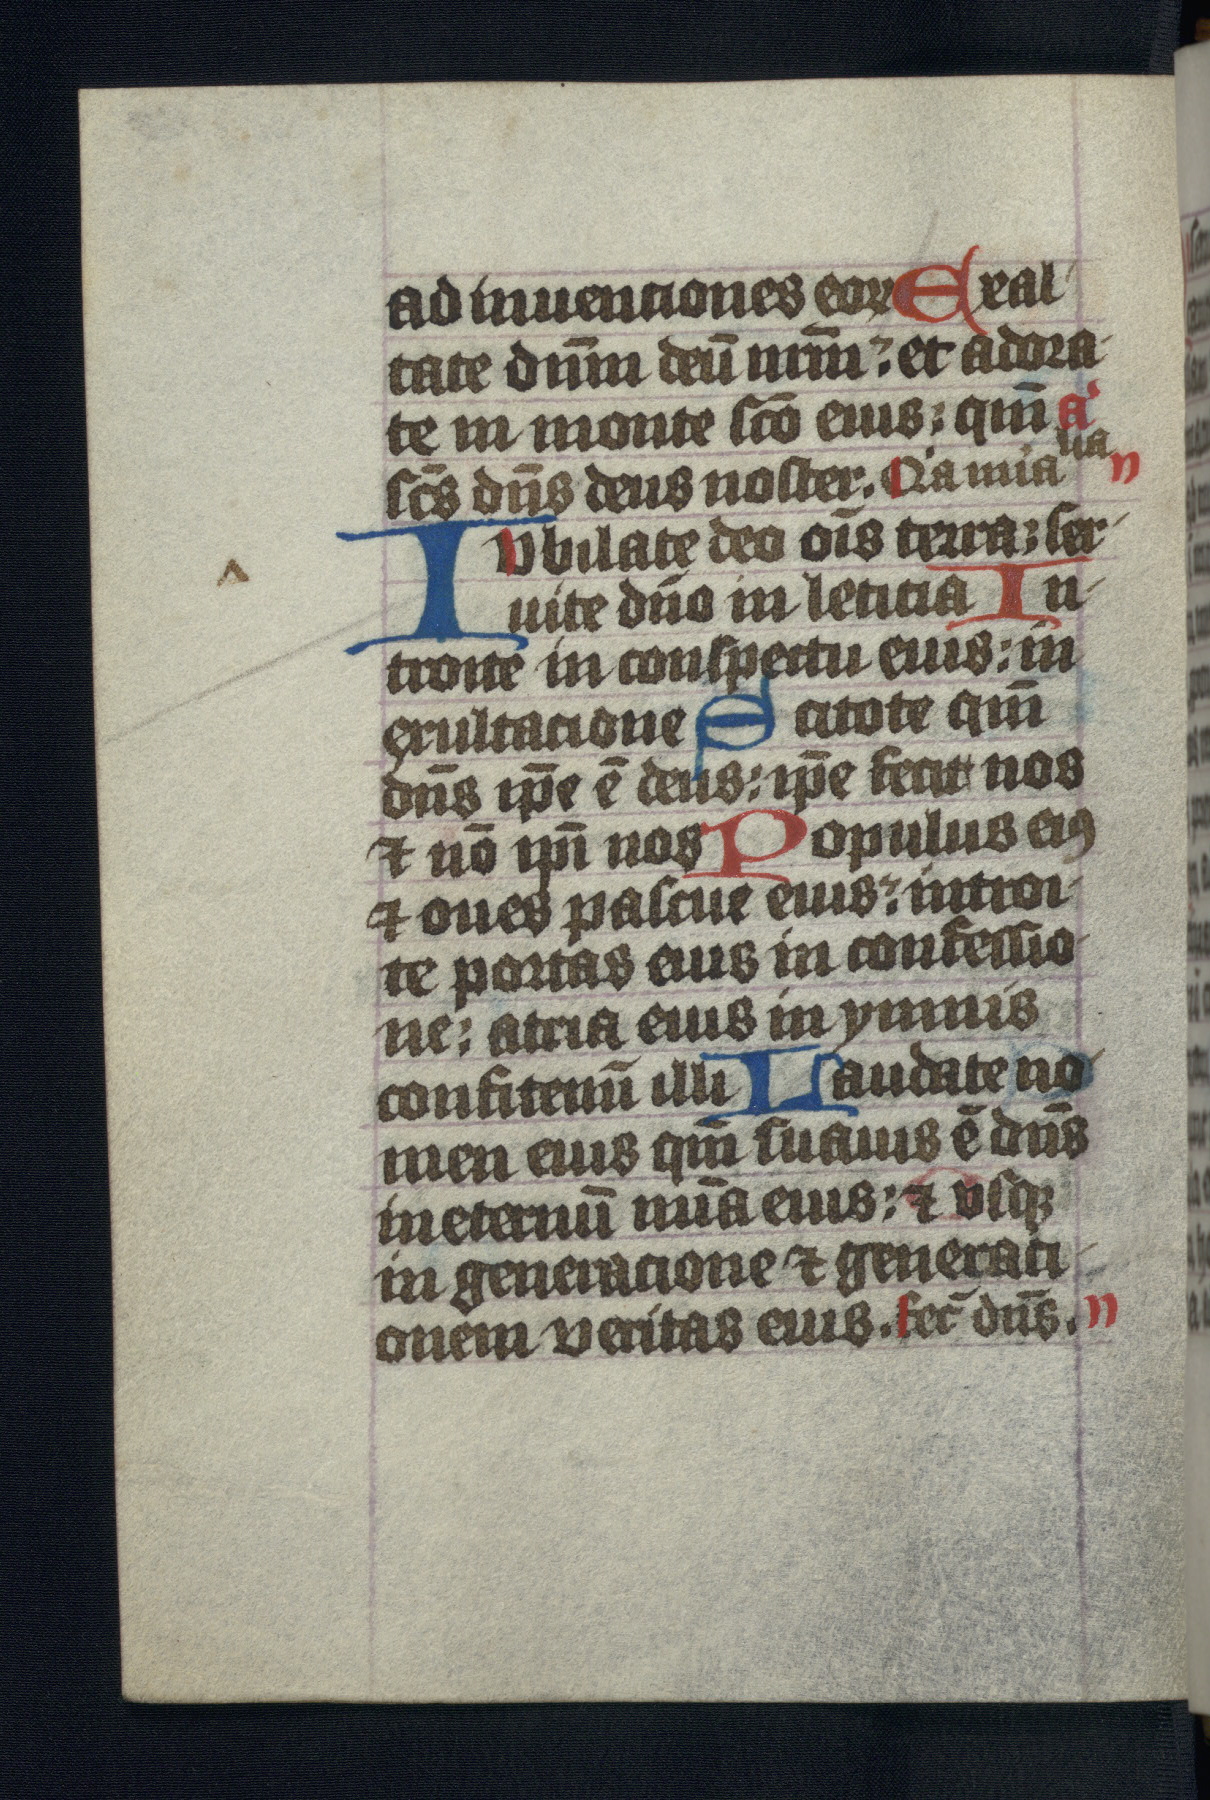 ad inuenciones eoꝝ Exal
tate dn̄m deū nr̄m: et adora-
te in monte sc̄o eius: qm̄ a
sc̄s dn̄s deus noster.
IVbilate deo oīs terra: ser-
uite dn̄o in leticia In-
troite in conspectu eius: in
exultacione Scitote qm̄
dn̄s ip̄e ē deus: ip̄e fecit nos
⁊ nō ip̄i nos Populus eiꝰ
⁊ oues pascue eius: introi-
te portas eius in confessio-
ne: atria eius in ymnis
confitemī illi Laudate no-
men eius qm̄ suauis ē dn̄s
in eternū mīa eius: ⁊ vsqꝫ
in generacione ⁊ generaci-
onem veritas eius. fec̄ dn̄s.